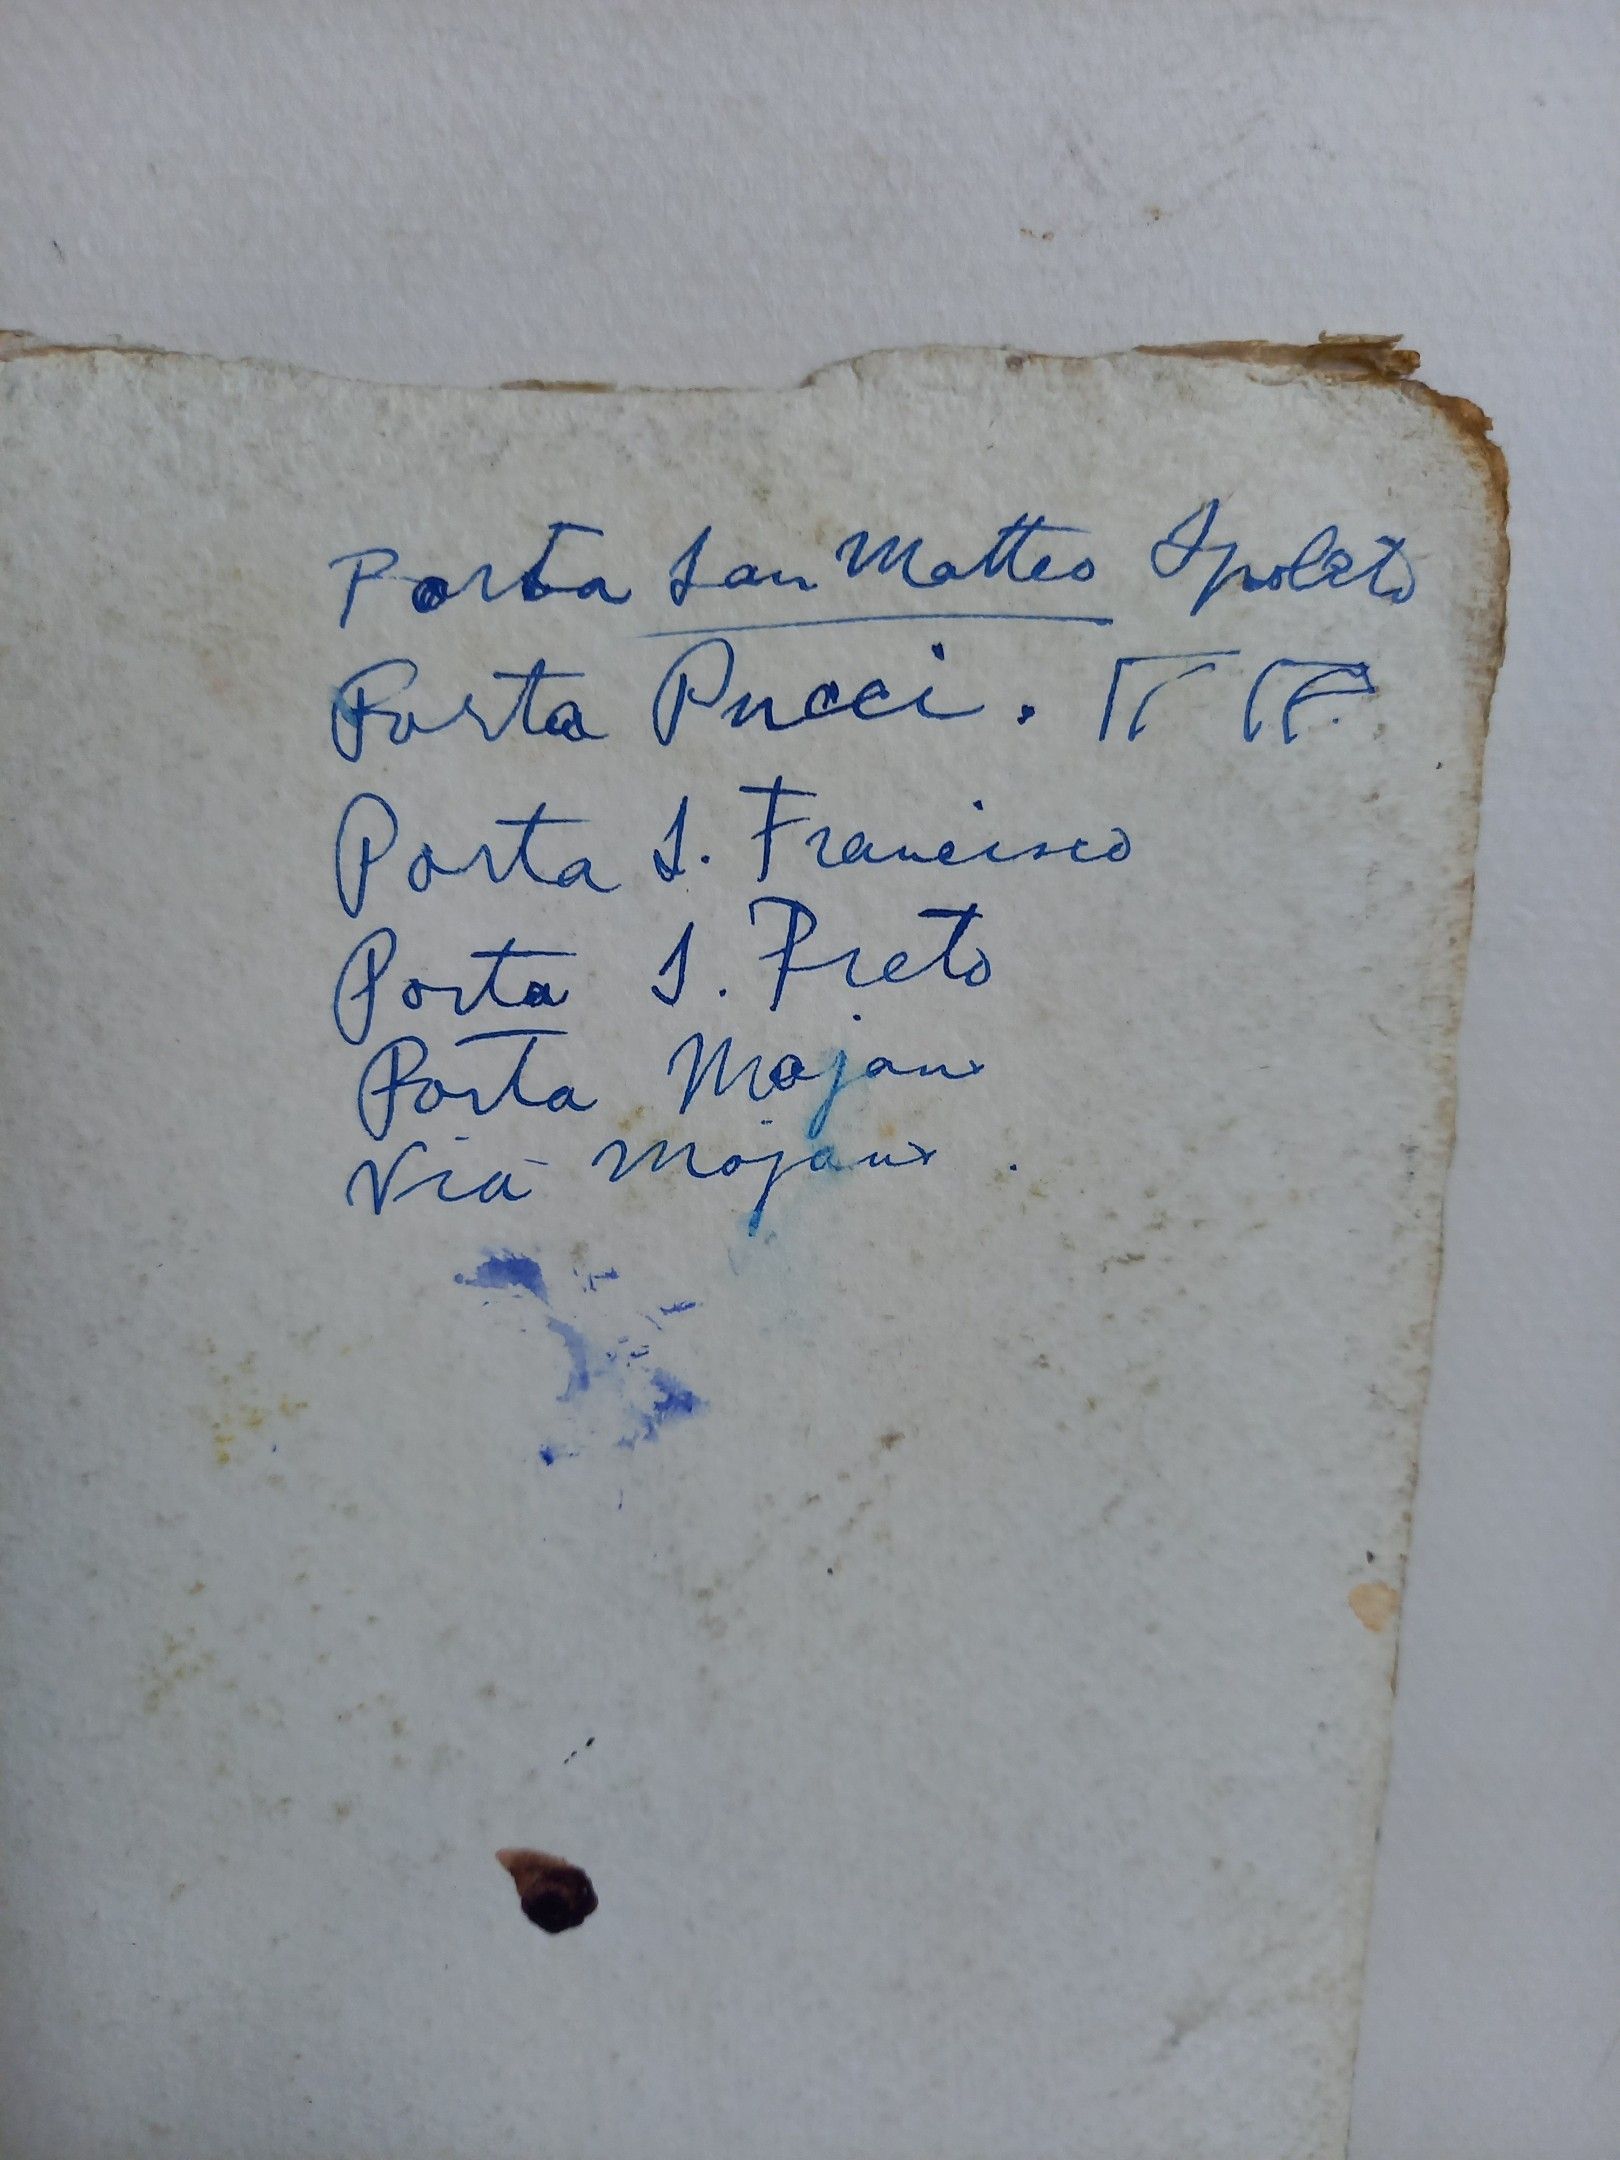 Porta San Matteo Spoleto
Porta Pucci.
Porta S. Francisco
Porta S. Preto
Porta Mojano
Via Mojano.